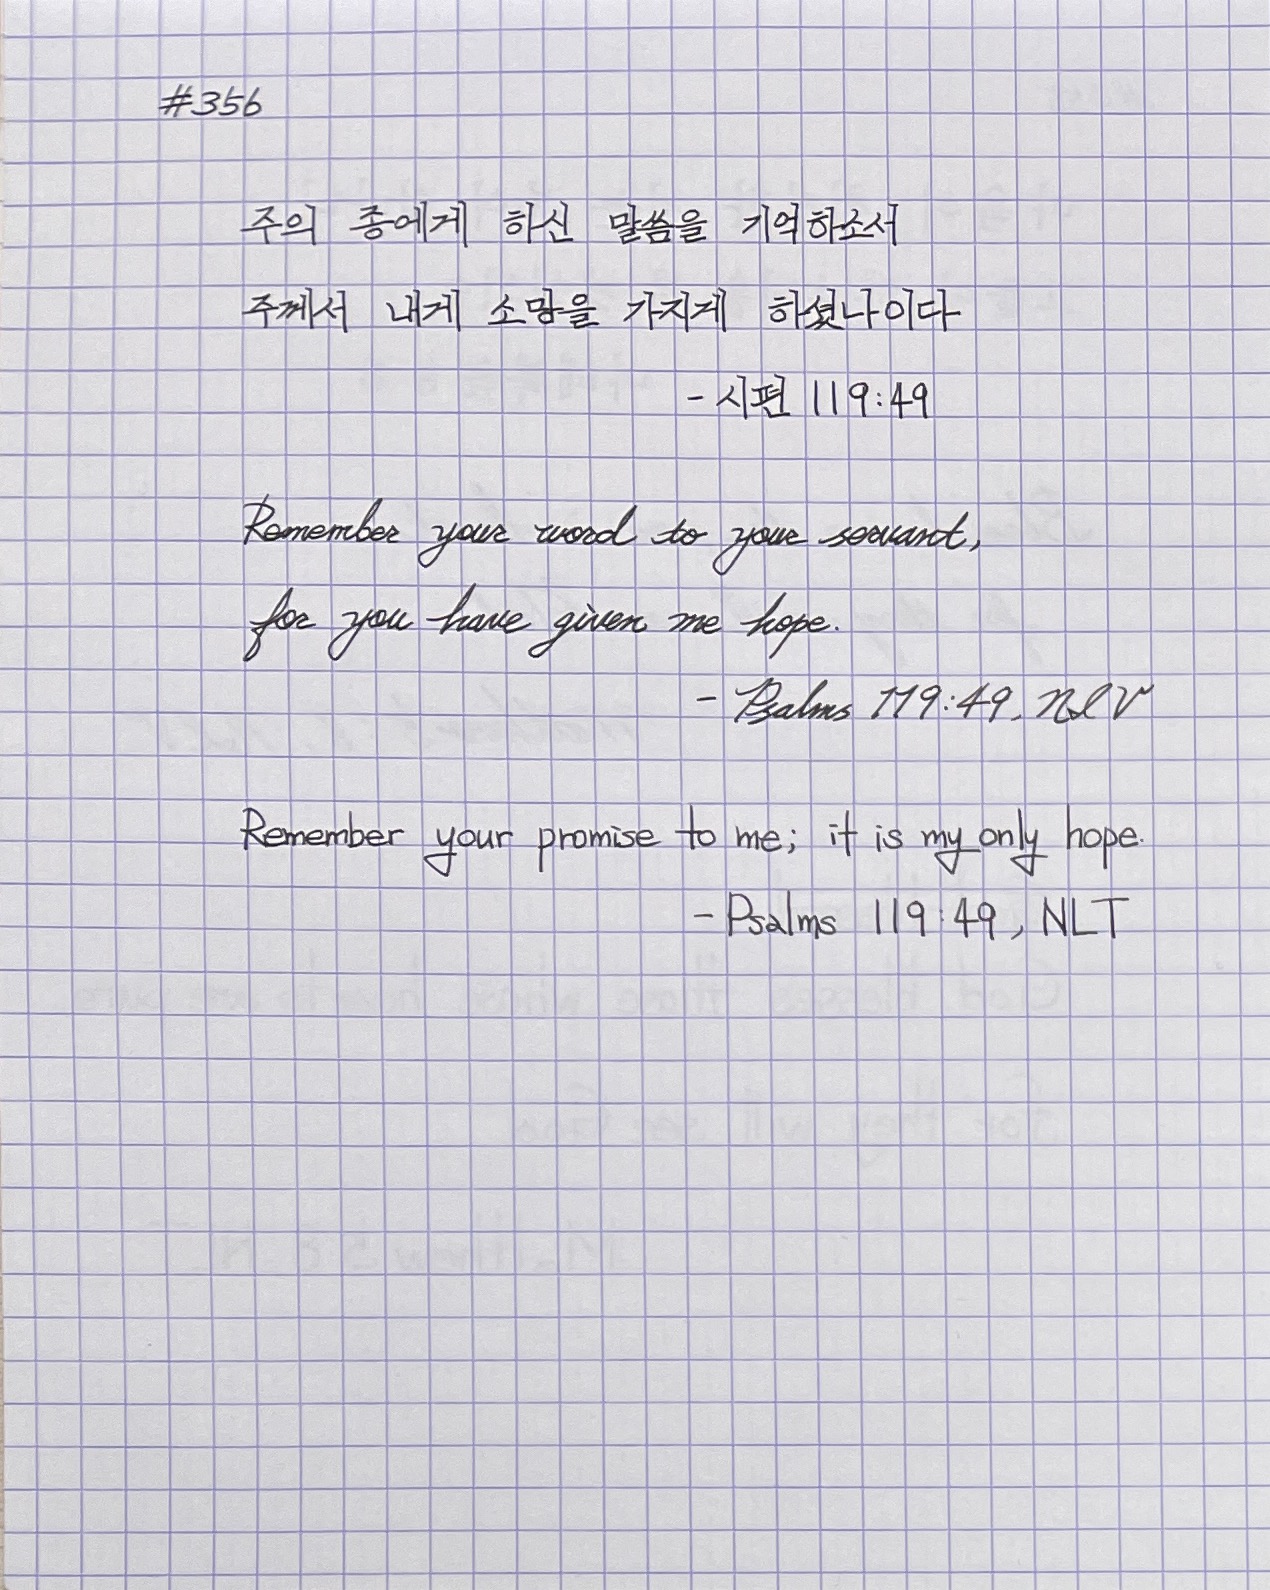 #356
주의 종에게 하신 말씀을 기억하소서
주께서 내게 소망을 가지게 하셨나이다
- 시편 119:49
Remember your word to your servant,
for you have given me hope.
- Psalms 119:49, NIV
Remember your promise to me; it is my only hope.
- Psalms 119:49, NLT